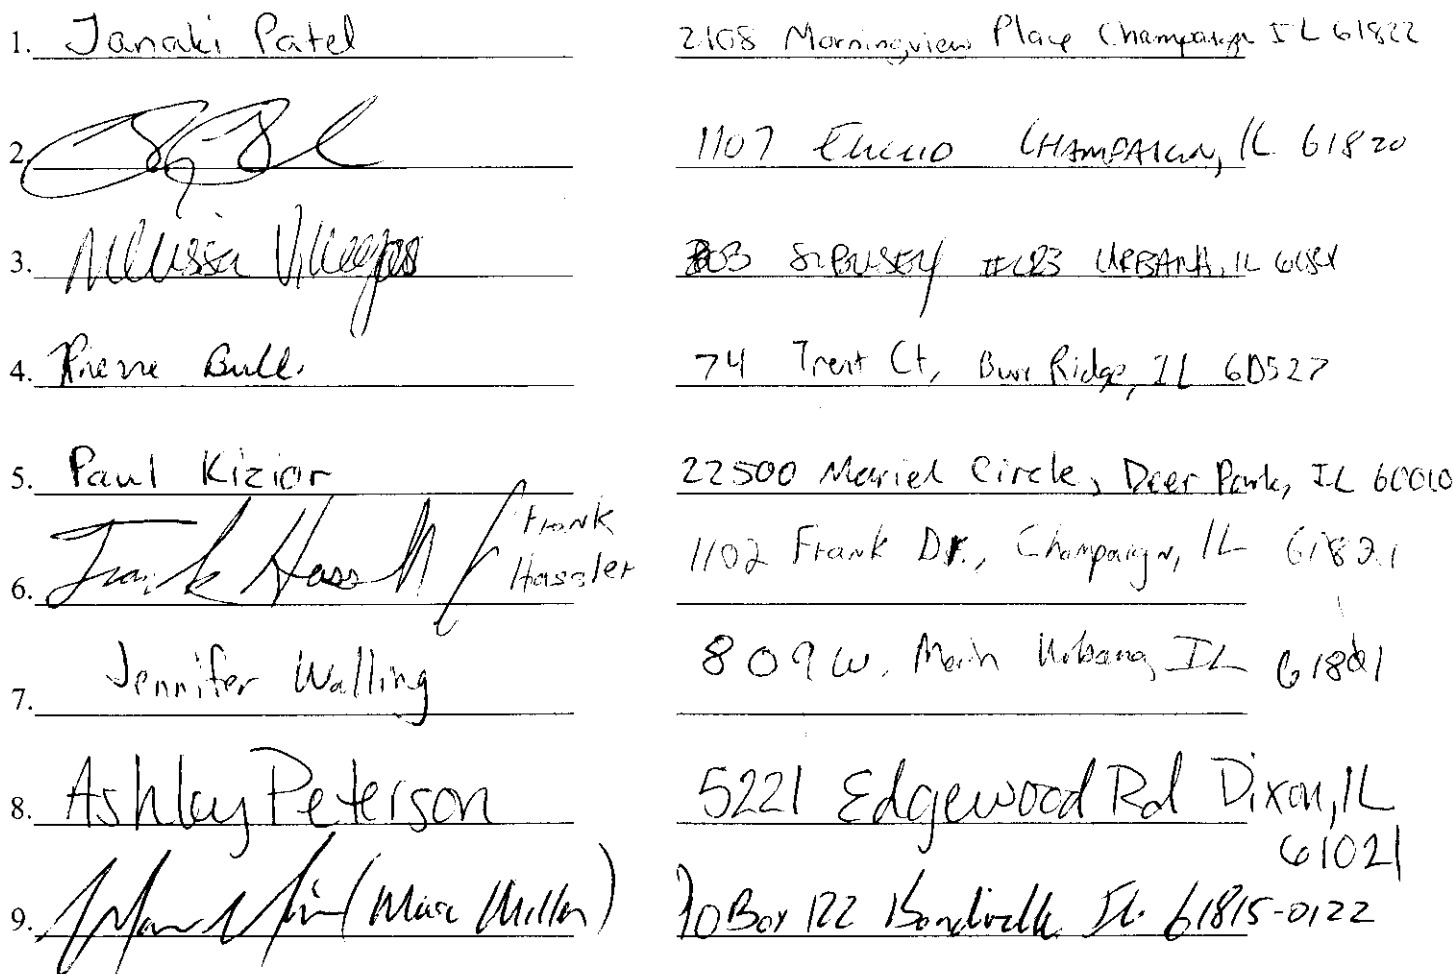 1. Janaki Patel 2108 Morningview Place Champaign IL 61822
2. 1107 CHAMPAIGN, IL 61820
3. Melissa Villegas URBANA, IL
4. Pierre Bull. 74 Trent Ct, Burr Ridge, IL 60527
5. Paul Kizior 22500 Mariel Circle, Deer Park, IL 60010
6. Frank Hassler / Frank Hassler 1102 Frank Dr., Champaign, IL 61821
7. Jennifer Walling 809 W. Main Urbana, IL 61801
8. Ashley Peterson 5221 Edgewood Rd Dixon, IL
61021
9. (Marc Miller) PO Box 122 Bondville IL 61815-0122